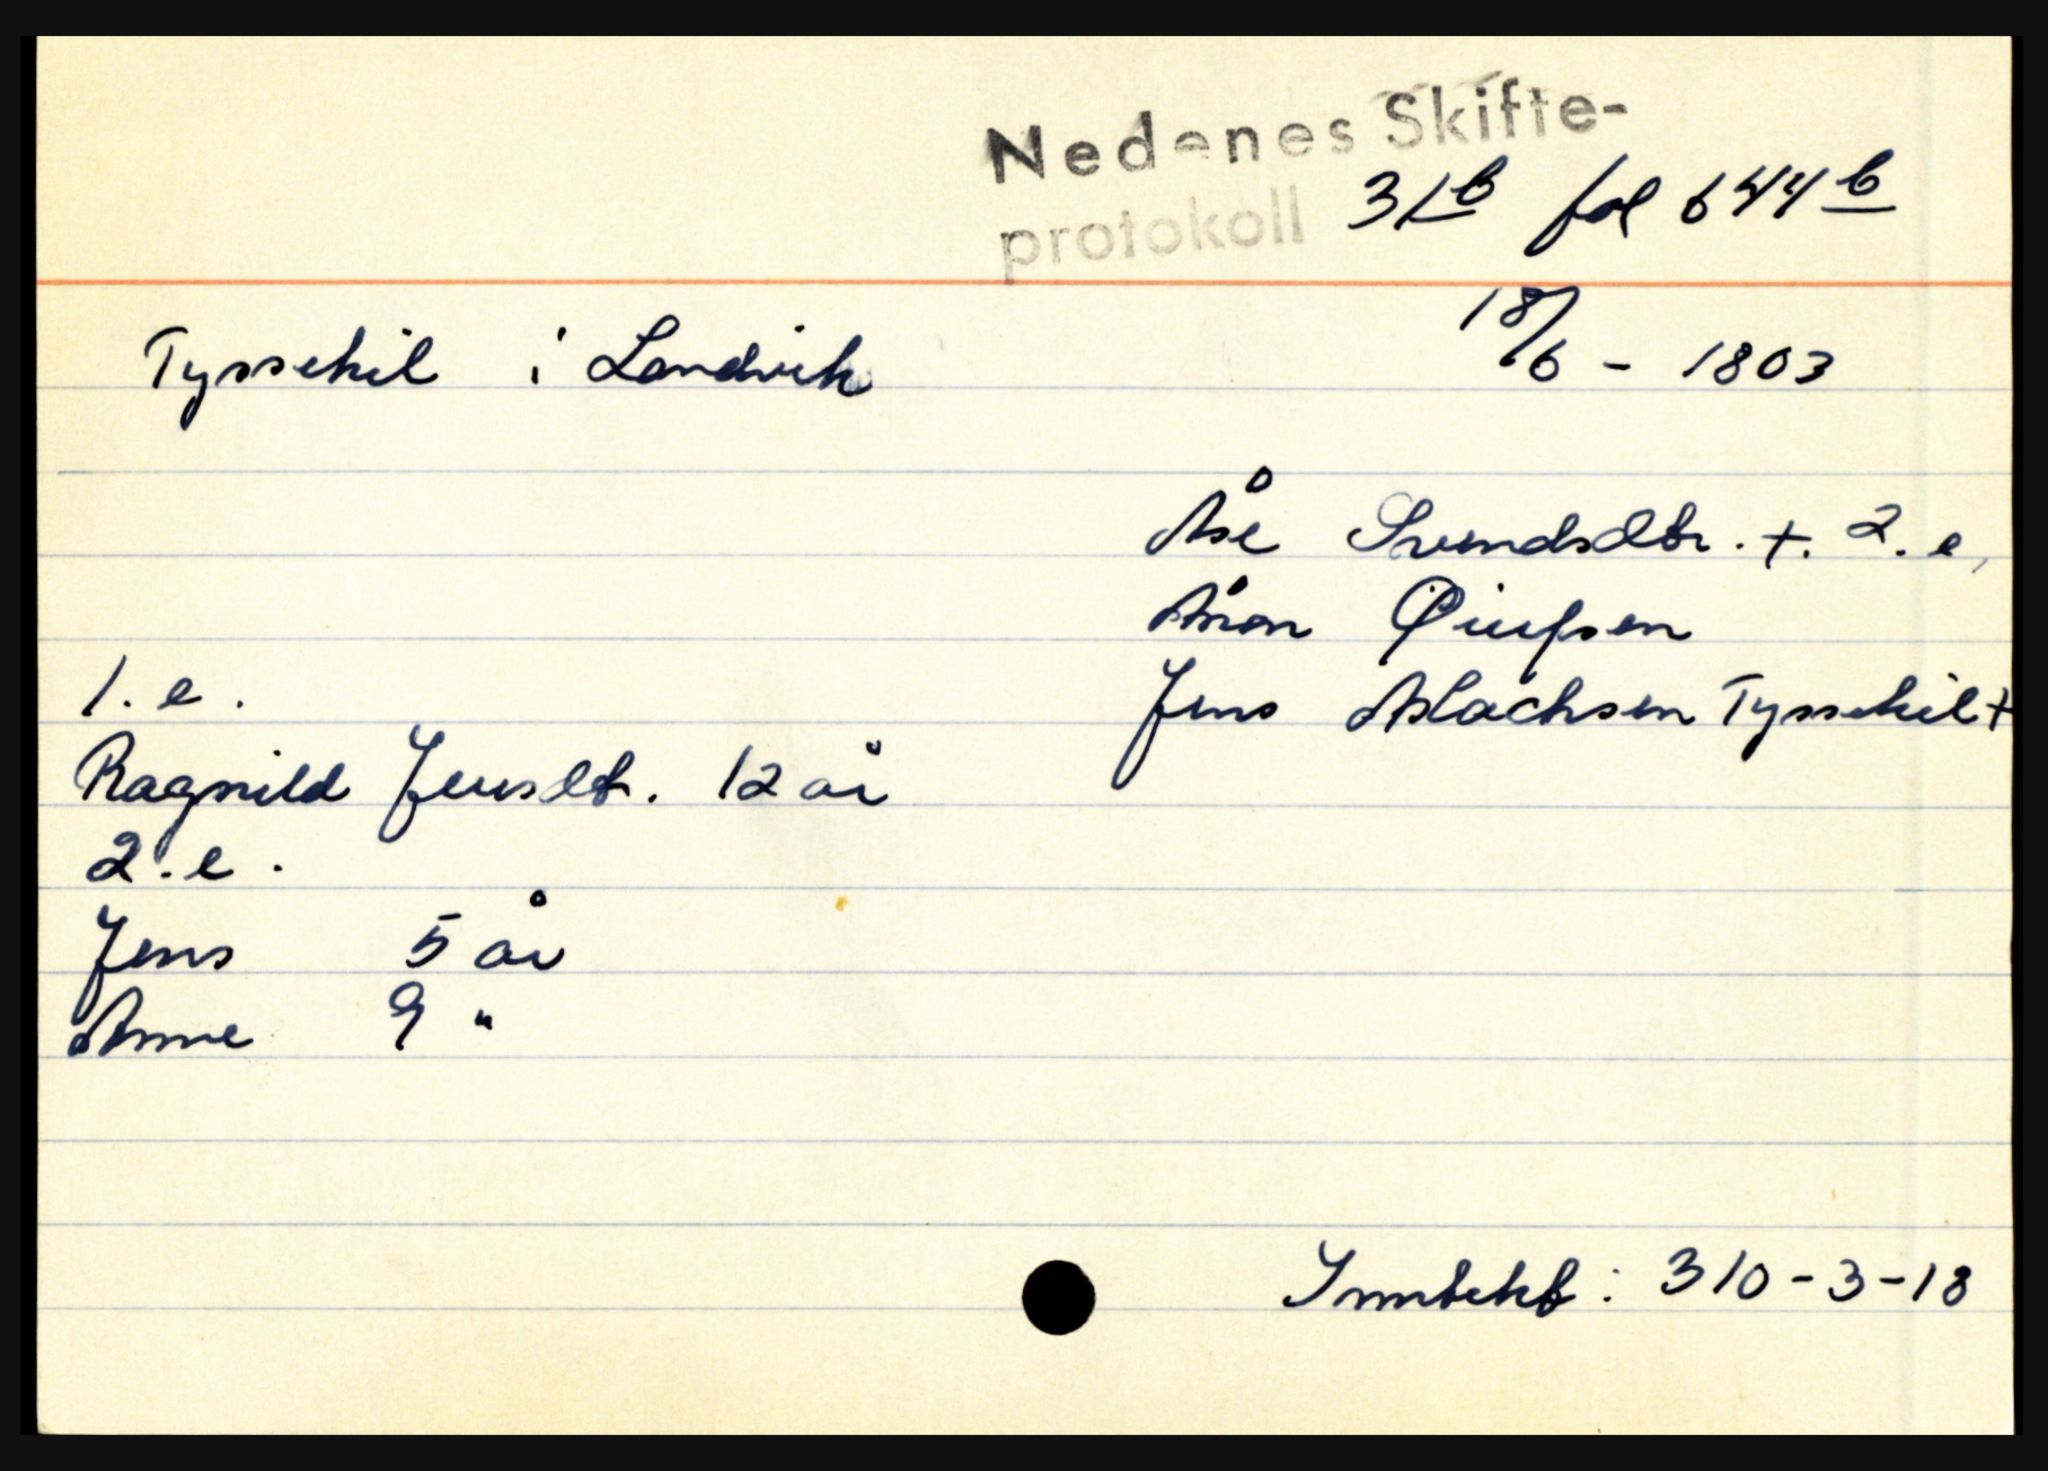 Nedenes Skifte-
protokoll 31b fol 644b
Tyssekil i Landvik 18/6 - 1803
Åse Svendsdtr. +. 2. e,
Ånon Øiufsen
1. e. Jens Aslachsen Tyssekil +
Ragnild Jensdtr. 12 år
2. e.
Jens 5 år
Anne 9 "
Inntekt: 310-3-18